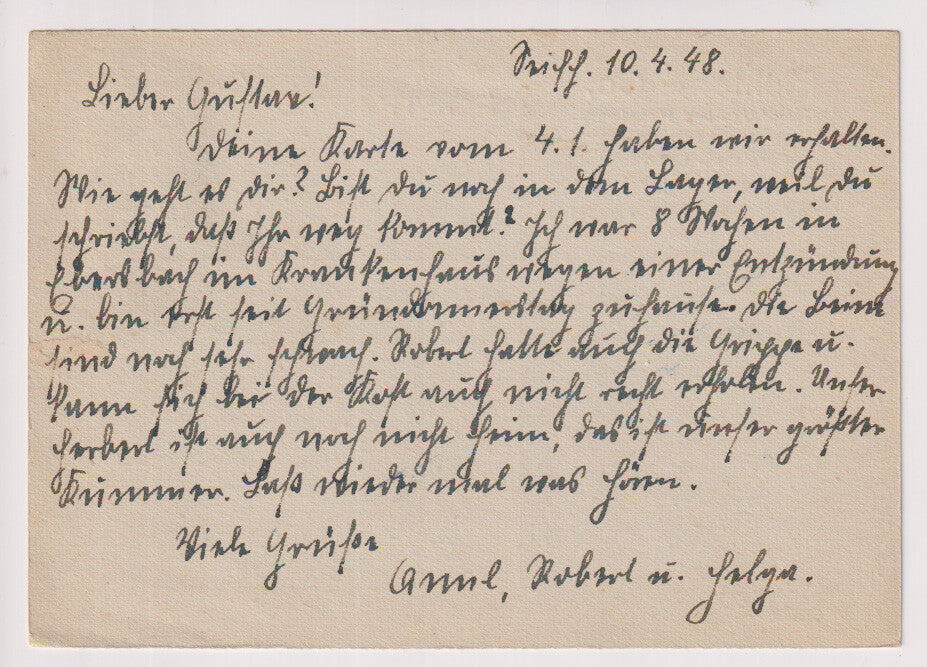 10. 4. 48.
Lieber Gustav!
Deine Karte vom 4. 1. haben wir erhalten.
Wie geht es Dir? Bist Du noch in dem Lager, weil Du
schriebst, daß Ihr weg kommt? Ich war 8 Wochen in
Ebersbach im Krankenhaus wegen einer Entzündung
u. bin erst seit Gründonnerstag zuhause. Die Beine
sind noch sehr schwach. Robert hatte auch die Grippe u.
kann sich bei der Kost auch nicht recht erholen. Unser
Herbert ist auch noch nicht heim, das ist unser größter
Kummer. Laß wieder mal was hören.
Viele Grüße
Robert u. Helga.